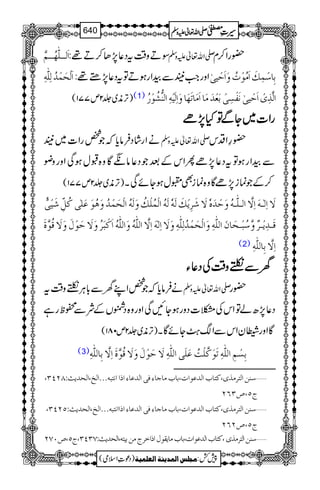 سیرتِ مصطفیٰ صلی اللہ تعالیٰ علیہ وسلم
640
حضور اکرم صلی اللہ تعالیٰ علیہ وسلم سوتے وقت یہ دعا پڑھا کرتے تھے: اَللّٰهُمَّ
بِاسْمِكَ اَمُوْتُ وَاَحْيٰى اور جب نیند سے بیدار ہوتے تو یہ دعا پڑھتے تھے: اَلْحَمْدُ لِلّٰهِ
الَّذِيْ اَحْيٰى نَفْسِيْ بَعْدَ مَا اَمَاتَهَا وَاِلَيْهِ النُّشُوْرُ (1) (ترمذی جلد۲ ص۱۷۷)
رات میں جاگے تو کیا پڑھے
حضور اقدس صلی اللہ تعالیٰ علیہ وسلم نے ارشاد فرمایا کہ جو شخص رات میں نیند
سے بیدار ہو تو یہ دعا پڑھے پھر اس کے بعد جو دعا مانگے گا وہ قبول ہو گی اور وضو
کر کے جو نماز پڑھے گا وہ نماز بھی مقبول ہو جائے گی۔ (ترمذی جلد۲ ص۱۷۷)
لَا اِلٰهَ اِلَّا اللّٰهُ وَحْدَهٗ لَا شَرِيْكَ لَهٗ لَهُ الْمُلْكُ وَلَهُ الْحَمْدُ وَهُوَ عَلٰى كُلِّ شَيْءٍ
قَدِيْرٌ وَّسُبْحَانَ اللّٰهِ وَالْحَمْدُلِلّٰهِ وَلَا اِلٰهَ اِلَّا اللّٰهُ وَاللّٰهُ اَكْبَرُ وَلَا حَوْلَ وَلَا قُوَّةَ
اِلَّا بِاللّٰهِ (2)
گھر سے نکلتے وقت کی دعاء
حضور صلی اللہ تعالیٰ علیہ وسلم نے فرمایا کہ جو شخص اپنے گھر سے باہر نکلتے وقت یہ
دعا پڑھ لے تو اس کی مشکلات دور ہو جائیں گی اور وہ دشمنوں کے شر سے محفوظ رہے
گا اور شیطان اس سے الگ ہٹ جائے گا۔ (ترمذی جلد۲ ص۱۸۰)
بِسْمِ اللّٰهِ تَوَكَّلْتُ عَلَى اللّٰهِ لَا حَوْلَ وَلَا قُوَّةَ اِلَّا بِاللّٰهِ (3)
سنن الترمذی، کتاب الدعوات، باب ماجاء فی الدعاء اذا انتبه...الخ، الحدیث: ۳۴۲۸،
ج۵، ص۲۶۳
سنن الترمذی، کتاب الدعوات، باب ماجاء فی الدعاء اذا انتبه...الخ، الحدیث: ۳۴۲۵،
ج۵، ص۲۶۲
سنن الترمذی، کتاب الدعوات، باب مایقول اذا خرج من بیته، الحدیث: ۳۴۳۷، ج۵، ص۲۷۰
پیش کش: مجلس المدینة العلمیة (دعوتِ اسلامی)